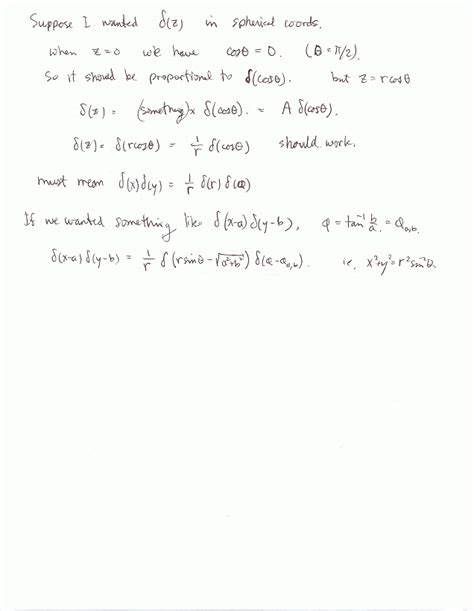 Suppose I wanted δ(z) in spherical coords.
when z=0 we have cosθ = 0. (θ = π/2).
So it should be proportional to δ(cosθ). but z = r cosθ
δ(z) = (something)× δ(cosθ). = A δ(cosθ).
δ(z) = δ(r cosθ) = 1/r δ(cosθ) should work.
must mean δ(x)δ(y) = 1/r δ(r) δ(φ)
If we wanted something like δ(x-a) δ(y-b), φ = tan⁻¹ b/a = φₐ,b.
δ(x-a) δ(y-b) = 1/r δ(r sinθ - √(a²+b²)) δ(φ-φₐ,b). ie, x²+y² = r² sin²θ.